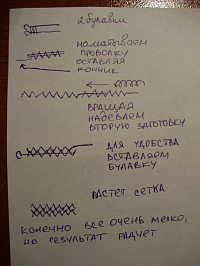 2 булавки
НАМАТЫВАЕМ
ПРОВОЛКУ
ОСТАВЛЯЯ
КОНЧИК
ВРАЩАЯ
НАДЕВАЕМ
ВТОРУЮ ЗАГОТОВКУ
ДЛЯ УДОБСТВА
ВСТАВЛЯЕМ
БУЛАВКУ
РАСТЕТ СЕТКА
КОНЕЧНО ВСЕ ОЧЕНЬ МЕЛКО,
НО РЕЗУЛЬТАТ РАДУЕТ